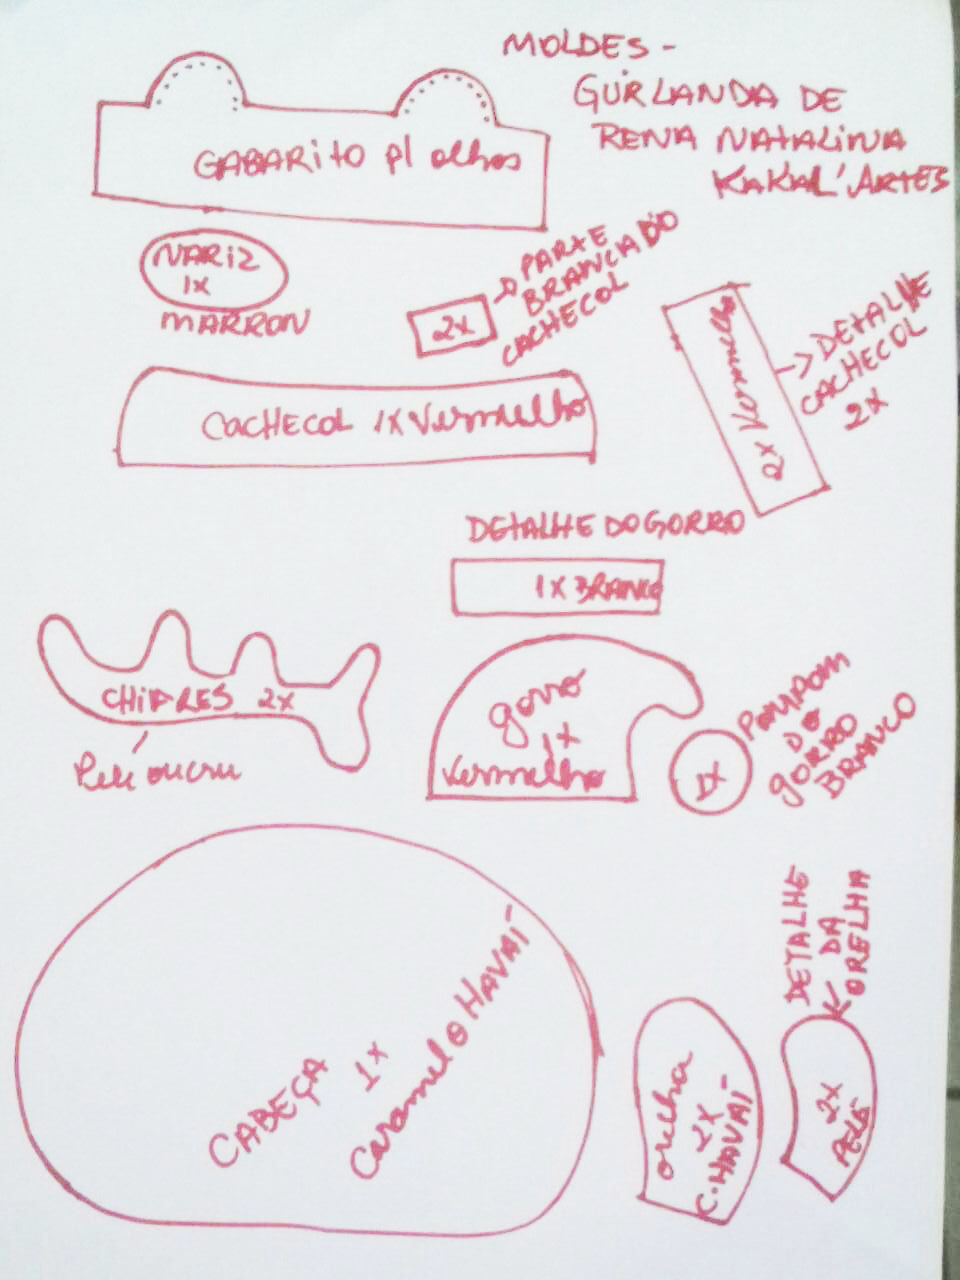 MOLDES -
GUIRLANDA DE
RENA NATALINA
KAKAL'ARTES
GABARITO p/ olhos
NARIZ
1X
MARRON
2X
PARTE
BRANCA DO
CACHECOL
CACHECOL 1X Vermelho
2X Vermelho
DETALHE
CACHECOL
2X
DETALHE DO GORRO
1X BRANCO
CHIFRES 2X
Pele ou cru
gorro
1X
Vermelho
1X
POMPOM
DO
GORRO
BRANCO
CABEÇA
1X
Caramelo HAVAÍ
orelha
2X
C. HAVAÍ
DETALHE
DA
ORELHA
2X
PELE